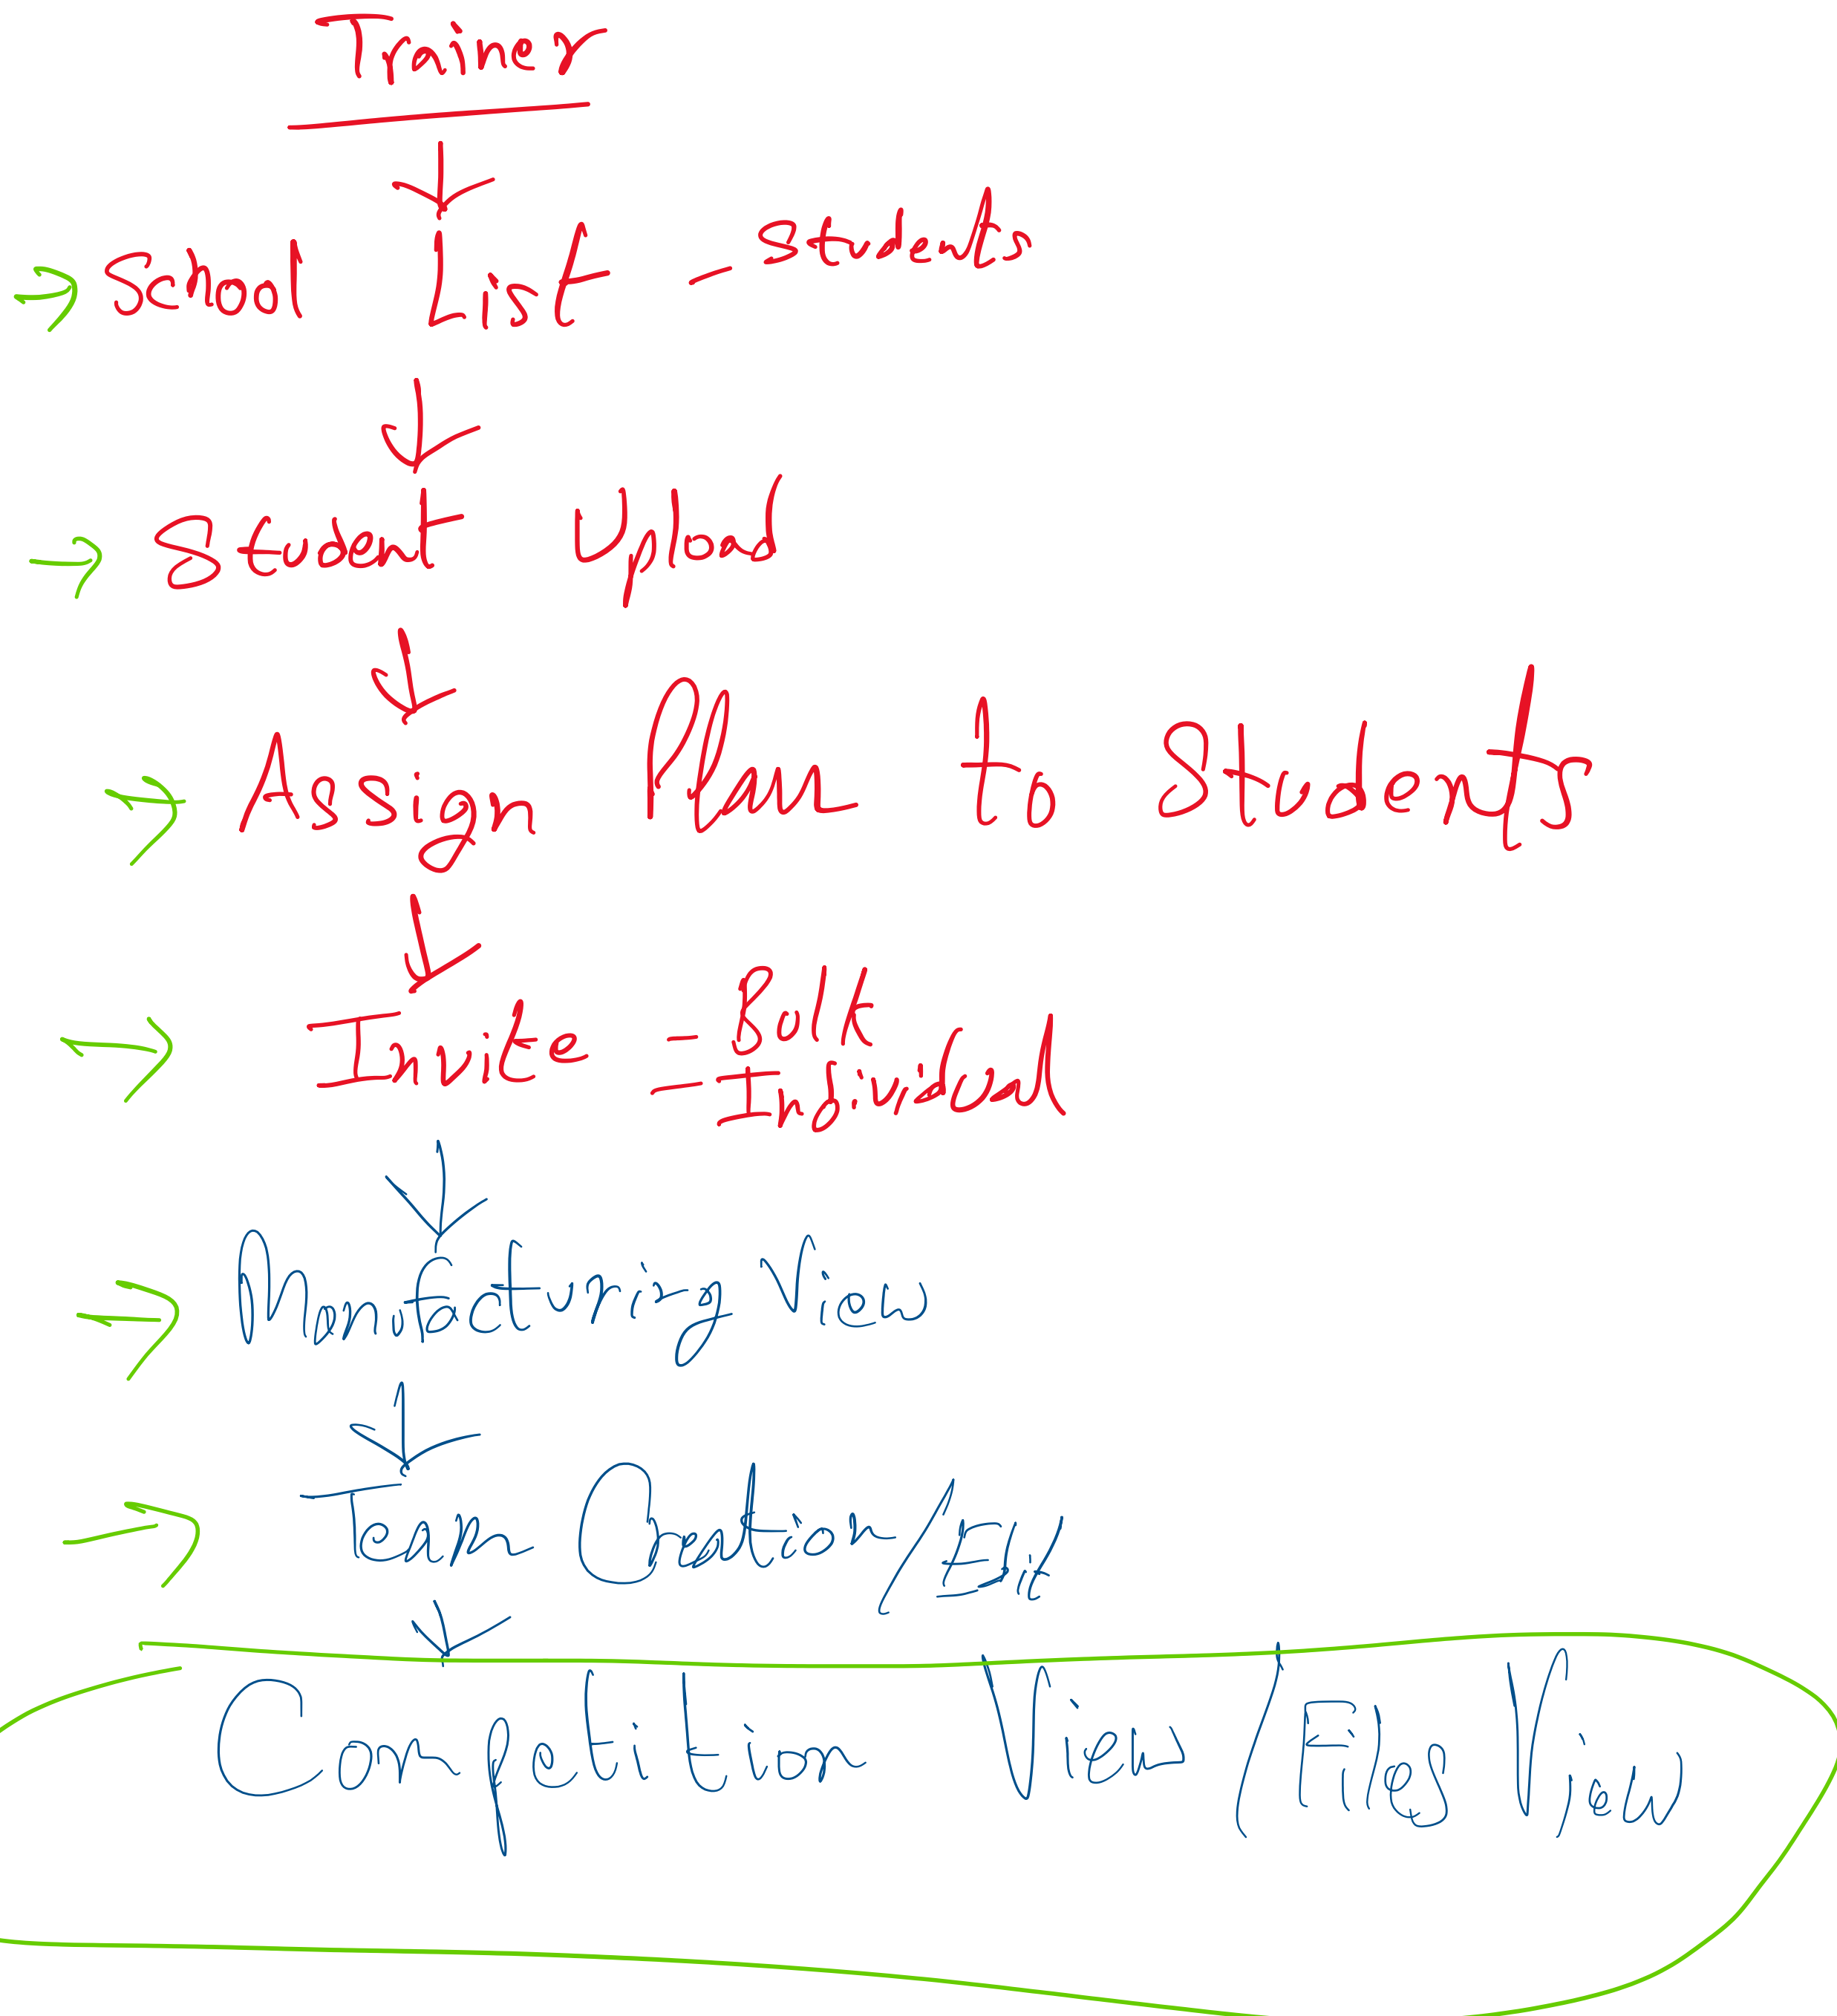 Trainer
School List - Students
Student Upload
Assign Plan to Students
Invite - Bulk
- Individual
Manufacturing View
Team Creation/Edit
Competition View/Files View